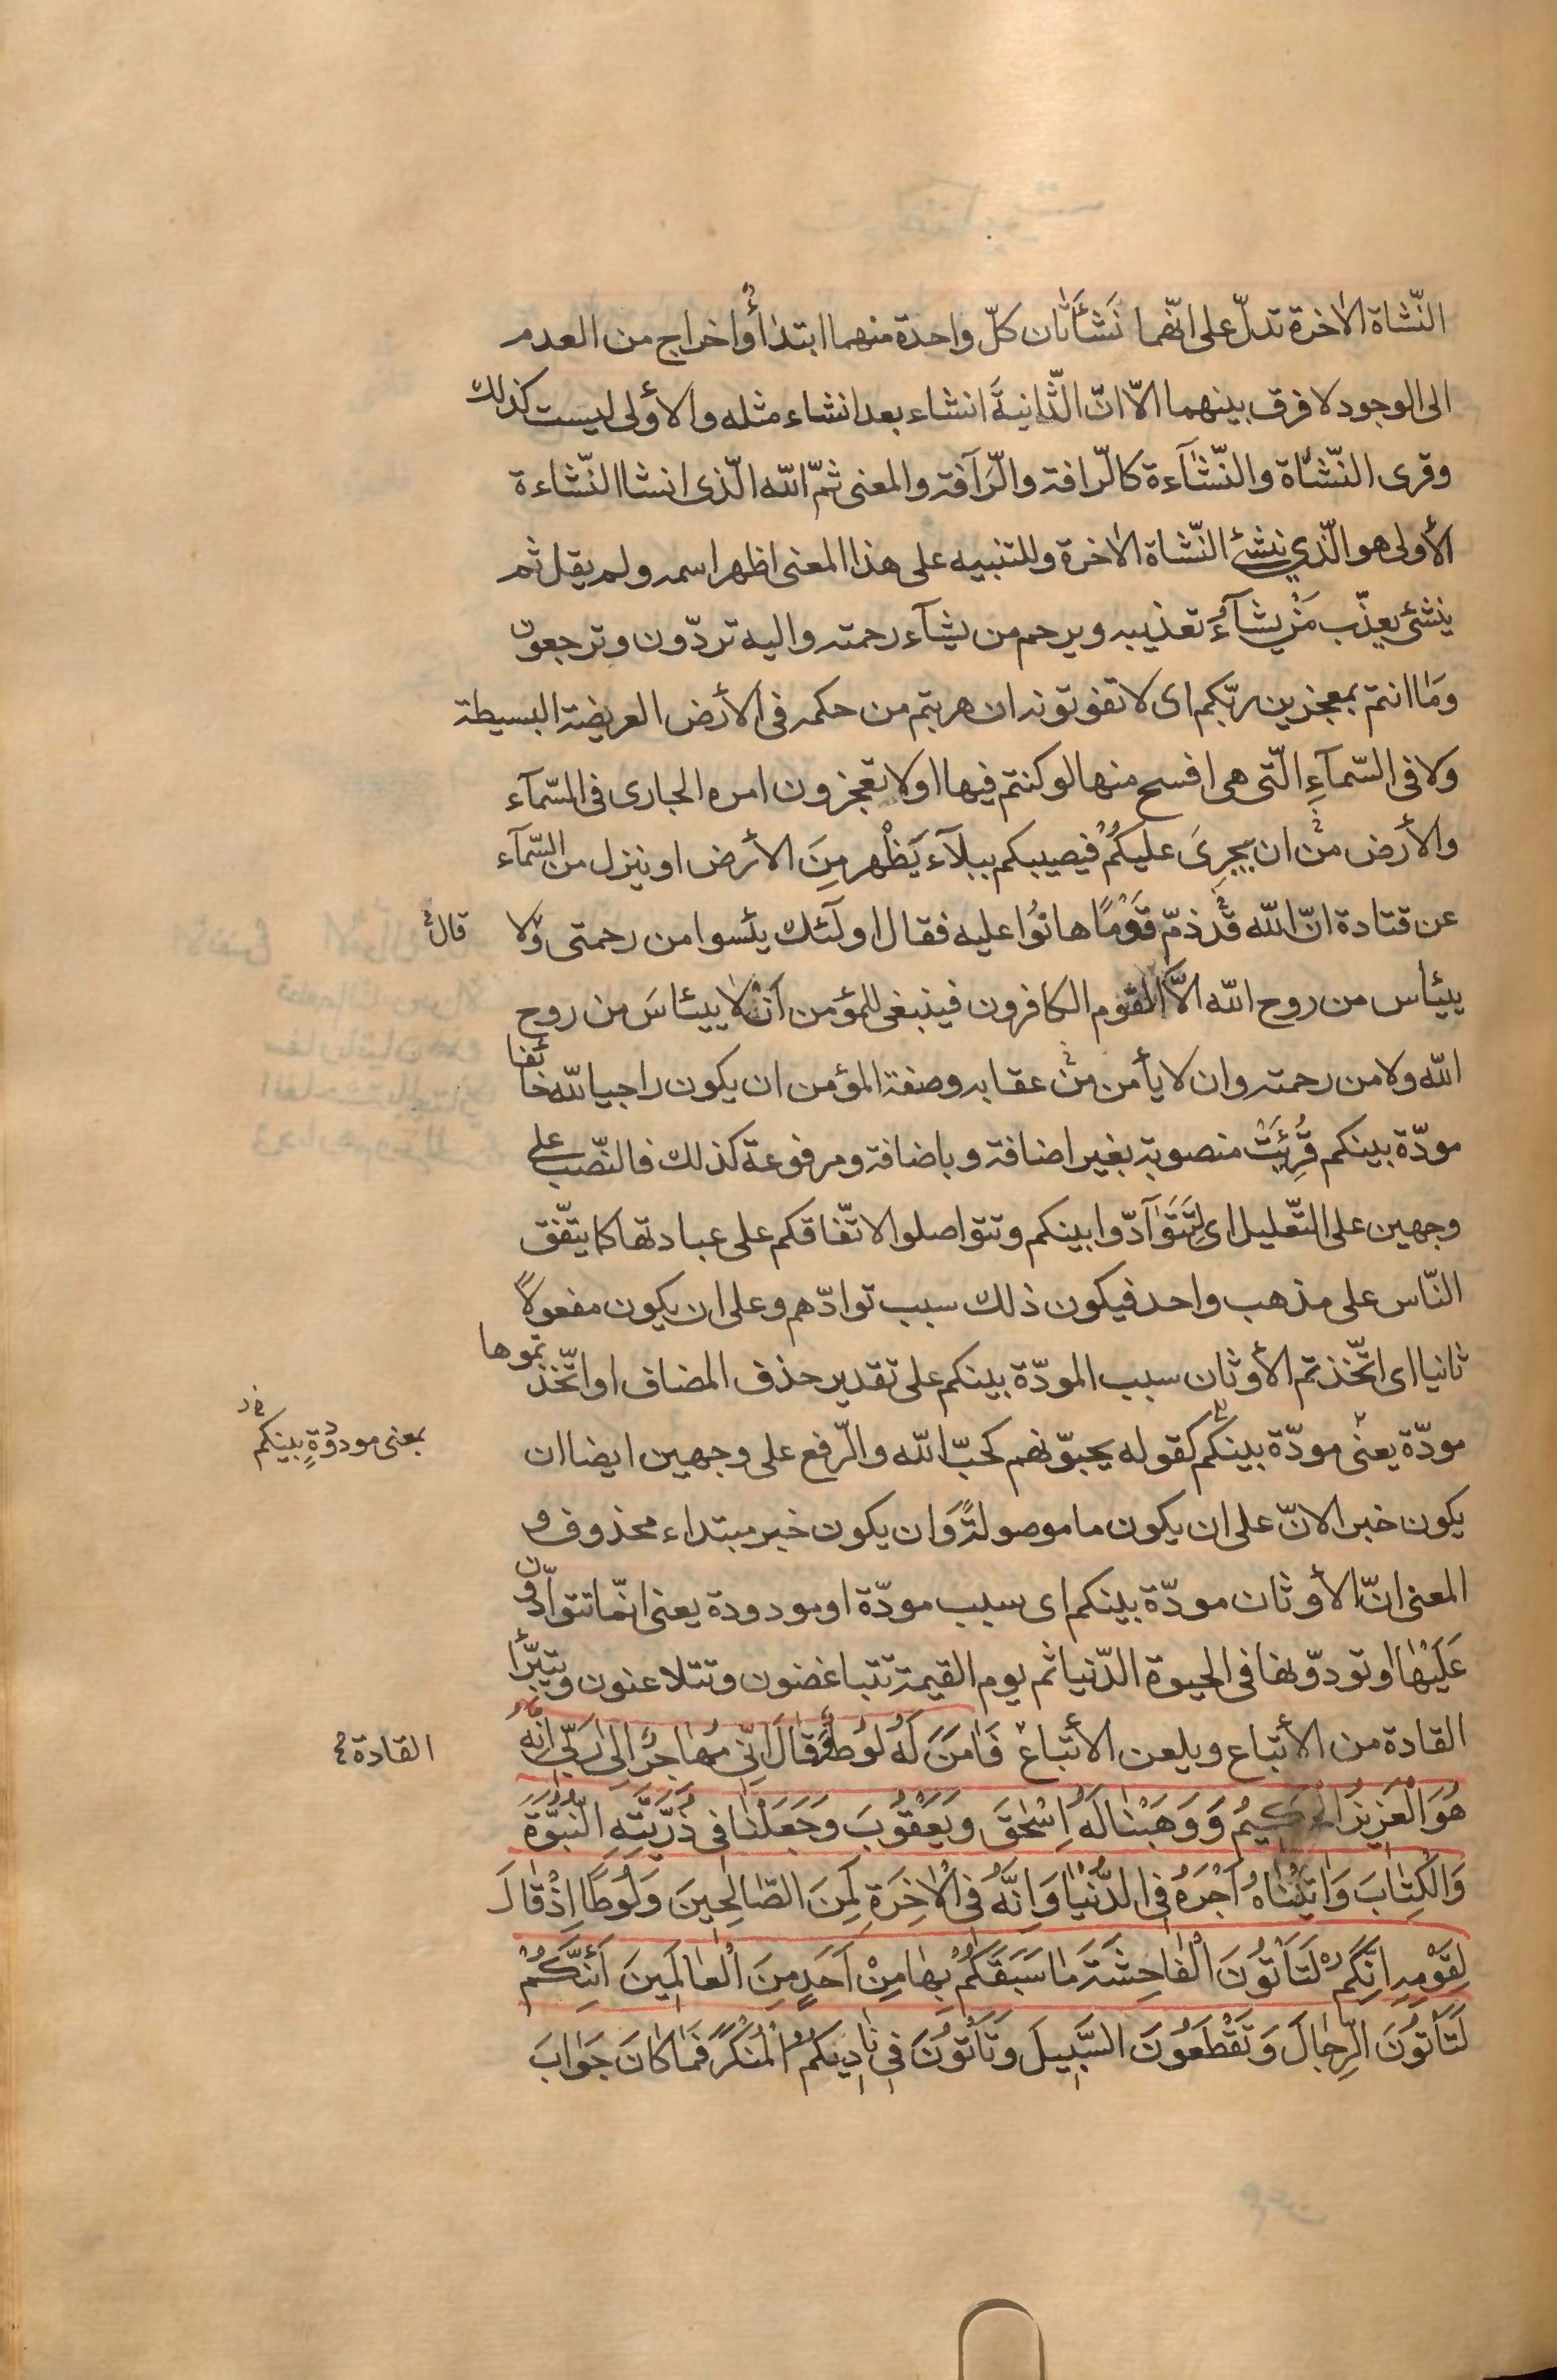 النّشاة الاخرة تدلّ على انّهما نَشْأتان كلّ واحدة منهما ابتداءٌ واخراج من العدم
الى الوجود لا فرق بينهما الّا انّ الثّانيةَ انشاء بعد انشاء مثله والأولى ليست كذلك
وقرى النّشاة والنّشآءة كالرّافة والرّآفة والمعنى ثمّ اللّه الّذى انشا النّشاءة
الأولى هو الّذي ينشئ النّشاة الاخرة وللتنبيه على هذا المعنى اظهر اسمه ولم يقل ثم
ينشئ يعذّب مَنْ يشآءُ تعذيبه ويرحم من يشآء رحمته واليه تردّون وترجعون
وما انتم بمعجزين ربّكم اى لا تفوتونه ان هربتم من حكمه فى الأرض العريضة البسيطة
ولا فى السّمآءِ الّتى هى افسح منها لو كنتم فيها او لا تعجزون امره الجارى فى السّمآء
والأرض من ان يجرِىَ عليكُمْ فيصيبكم ببلآء يَظْهر مِنَ الأرض او ينزل من السّمآء
عن قتادة انّ اللّه قد ذمّ قَوْمًا هانُوا عليه فقال اولٓئك يئسوا من رحمتى ولا
قال
ييئاس من روح اللّه الّا القوم الكافرون فينبغى للمؤمن أن لا ييئاسَ من روح
اللّه ولا من رحمته وان لا يأمن من عقابه وصفة المؤمن ان يكون راجيا للّه خائفا
مودّة بينكم قُرِئَتْ منصوبة بغير اضافة وباضافة ومرفوعة كذلك فالنّصب على
وجهين على التّعليل اى لِتَتَوَآدّوا بينكم وتتواصلوا لاتّفاقكم على عبادتها كما يتّفق
النّاس على مذهب واحد فيكون ذلك سبب توادّهم وعلى ان يكون مفعولًا
ثانيا اى اتّخذتم الأوثان سبب المودّة بينكم على تقدير حذف المضاف او اتّخذتموها
مودّة يعنى مودّة بينكم كقوله يحبوّنهم كحبّ اللّه والرّفع على وجهين ايضا ان
بمعنى مودودةٍ بينكم
يكون خبر الانّ على ان يكون ما موصولةً وَان يكون خبر مبتداء محذوف و
المعنى انّ الأوثان مودّة بينكم اى سبب مودّة او مودودة يعنى انّما تتوآدّون
عَلَيْها او تودّونها فى الحيوة الدّنيا ثم يوم القيمة تتباغضون وتتلاعنون ويتبرّأ
القادة من الأتباع ويلعن الأتباع فَامَنَ لَهُ لُوطٌ وَقَالَ اِنّى مُهاجِرٌ اِلى رَبّى اِنَّهُ
القادة
هُوَ الْعَزيزُ الْحَكيمُ وَوَهَبْنا لَهُ اِسْحقَ وَيَعْقُوبَ وَجَعَلْنا فى ذُرّيَّتِهِ النُّبُوَّةَ
وَالْكِتابَ وَاتَيْناهُ اَجْرَهُ فِى الدُّنْيا وَاِنَّهُ فِى الْاخِرَةِ لَمِنَ الصّالِحينَ وَلُوطًا اِذْ قالَ
لِقَوْمِهِ اِنَّكُمْ لَتَأْتُونَ الْفاحِشَةَ ما سَبَقَكُمْ بِها مِنْ اَحَدٍ مِنَ الْعالَمينَ اَئِنَّكُمْ
لَتَأْتُونَ الرِّجالَ وَتَقْطَعُونَ السَّبيلَ وَتَأْتُونَ فى ناديكُمُ الْمُنْكَرَ فَما كانَ جَوابَ